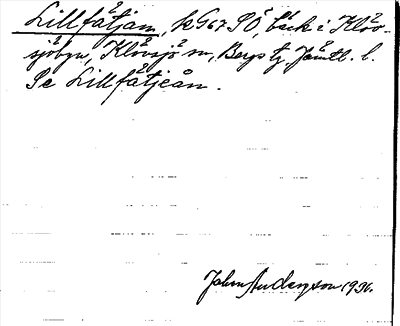 Lillfåtjån, k G67 SO, bäck i Klöv-
sjöbyn, Klövsjö sn, Bergs tg, Jämtl. l.
Se Lillfåtjeån.
John Anderson 1936.